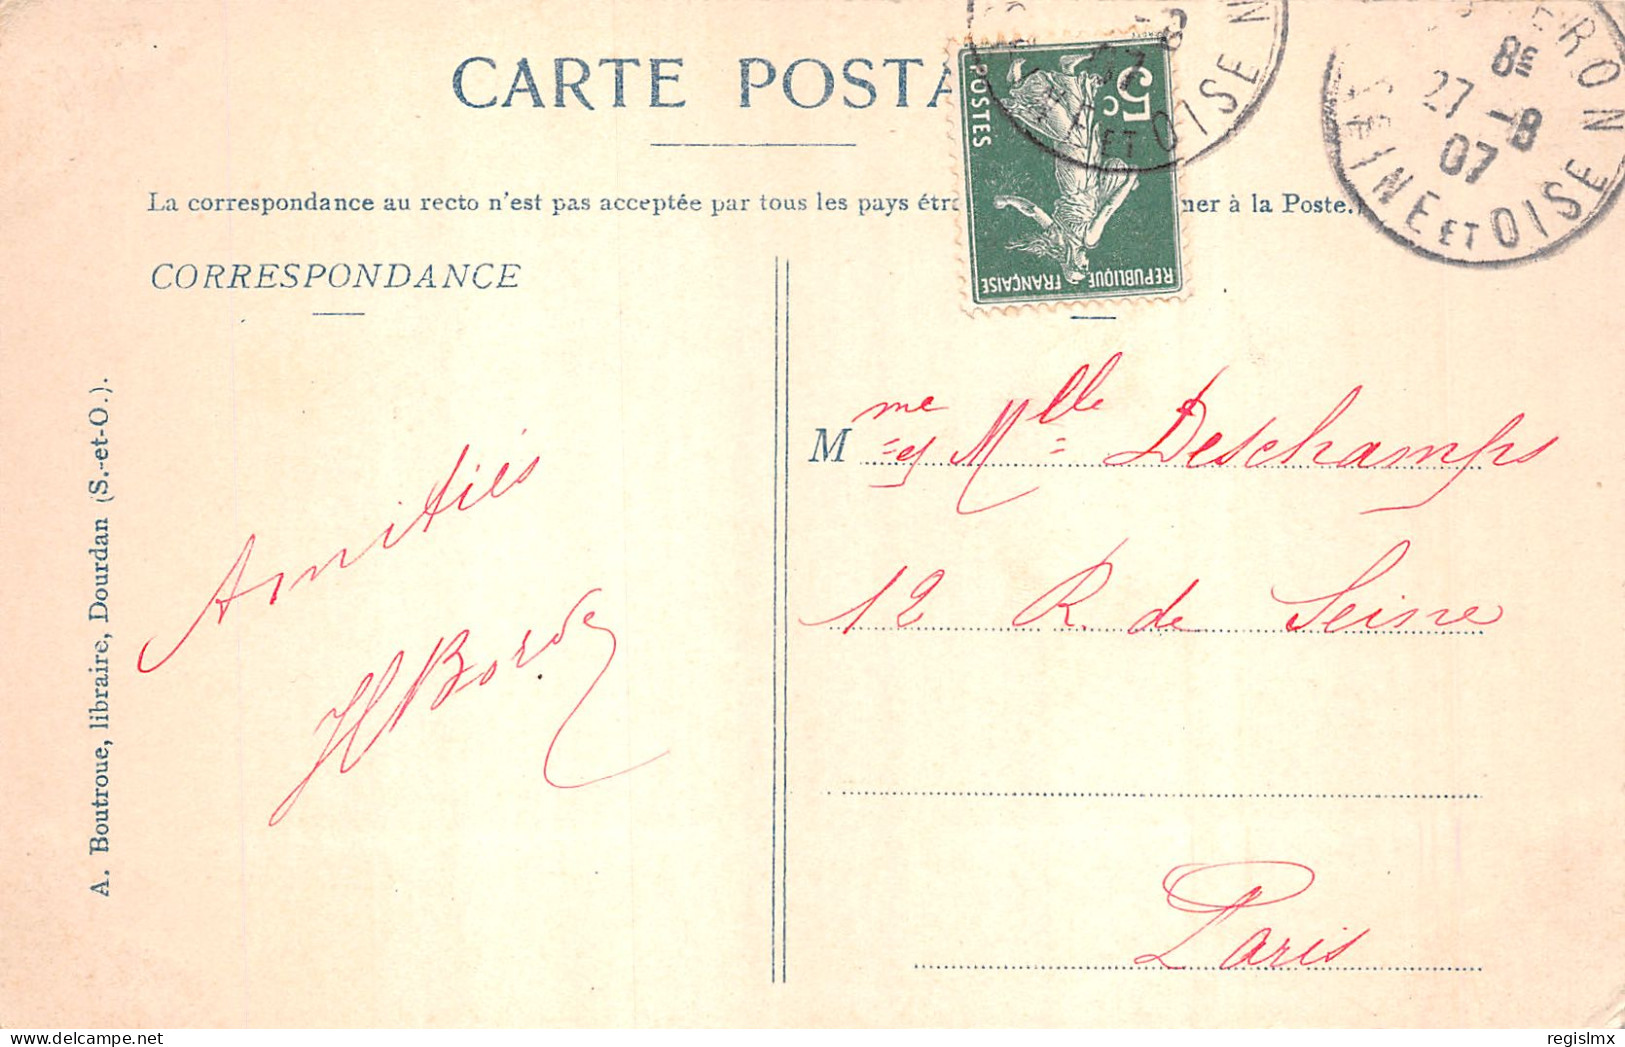 CARTE POSTA
La correspondance au recto n'est pas acceptée par tous les pays étra
mer à la Poste.)
CORRESPONDANCE
5c
POSTES
REPUBLIQUE
FRANÇAISE
ET OISE
8E
27 -8
07
SEINE ET OISE
A. Boutroue, libraire, Dourdan (S.-et-O.).
Amitiés
HBorde
Mme et Mlle Deschamps
12 R. de Seine
Paris
regislmx